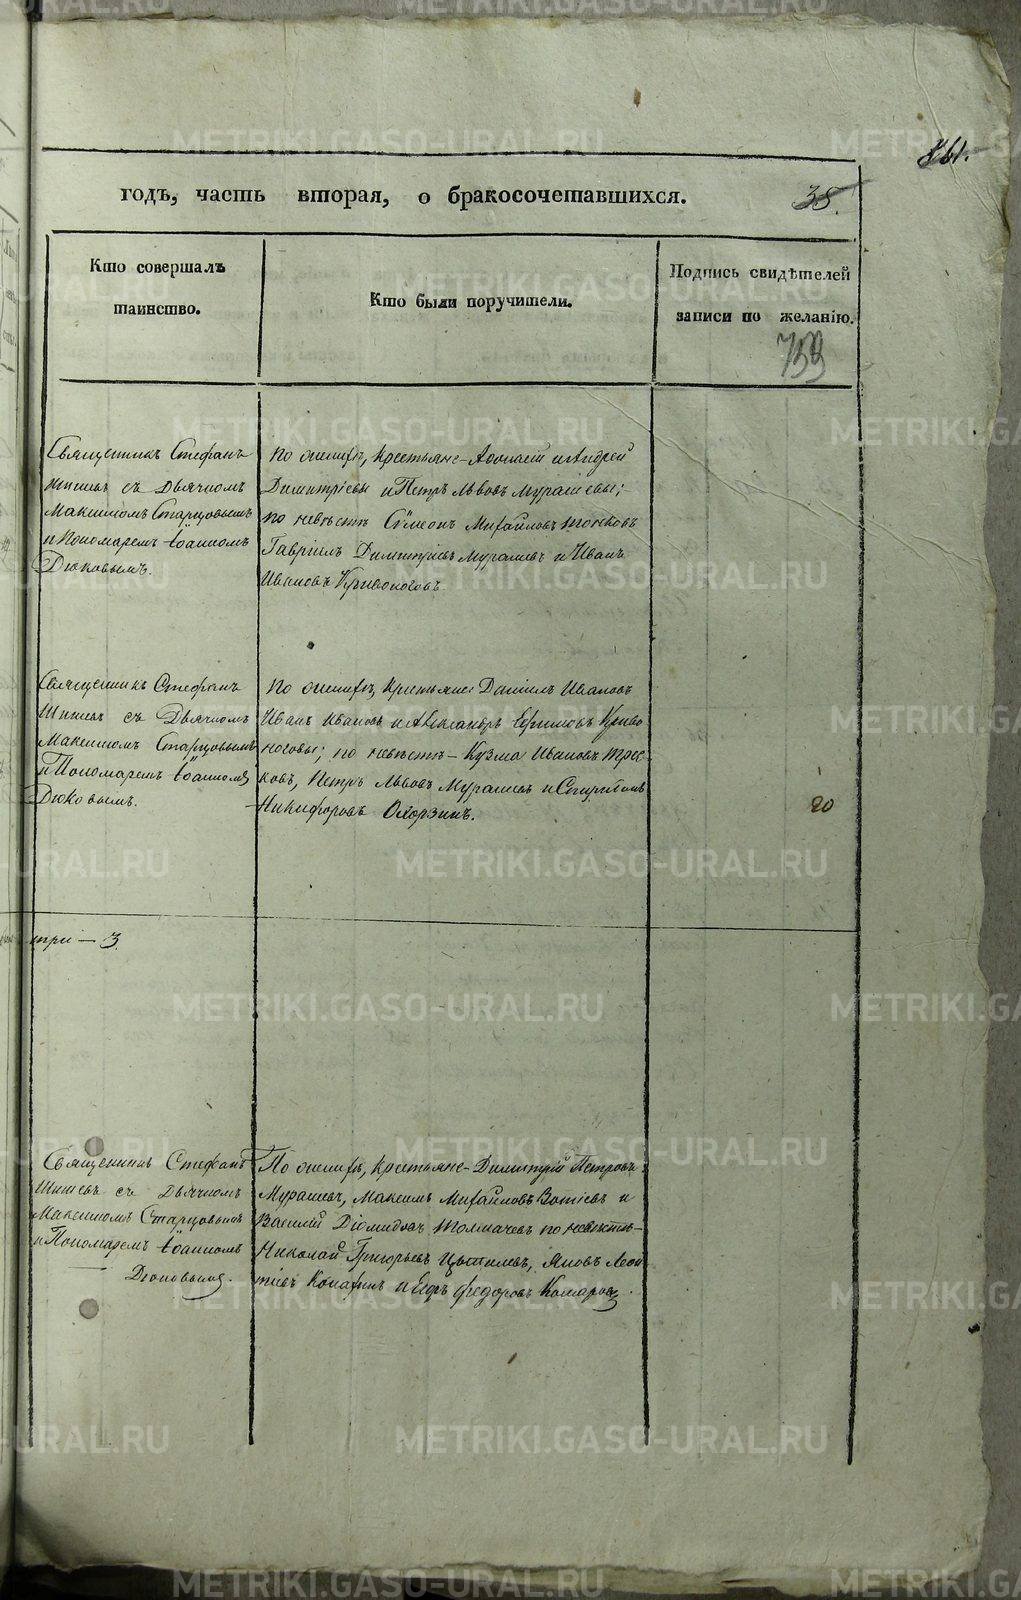 161.
годъ, часть вторая, о бракосочетавшихся.
38.
Кто совершалъ
таинство.
Кто были поручители.
Подпись свидѣтелей
записи по желанію.
759
Священникъ Стефанъ
Шишевъ съ Дьячкомъ
Максимомъ Старцовымъ
и Пономаремъ Іоанномъ
Дюковымъ.
По женихѣ, Крестьяне - и Андрей
Димитріевы и Петръ Львовъ Мурашевы;
по невѣстѣ Сѵмеонъ Михайловъ
Гавріилъ Димитріевъ Мурашевъ и Иванъ
Ивановъ Кривоноговъ
Священникъ Стефанъ
Шишевъ съ Дьячкомъ
Максимомъ Старцовымъ
и Пономаремъ Іоанномъ
Дюковымъ.
По женихѣ, Крестьяне Даніилъ Ивановъ
Иванъ Ивановъ и Александръ Ефимовъ Криво
ноговы; по невѣстѣ - Кузма Ивановъ
ковъ, Петръ Львовъ Мурашевъ и Спиридонъ
Никифоровъ Охорзинъ.
20
три — 3.
Священникъ Стефанъ
Шишевъ съ Дьячкомъ
Максимомъ Старцовымъ
и Пономаремъ Іоанномъ
Дюковымъ.
По женихѣ, Крестьяне - Димитрій Петровъ
Мурашевъ, Максимъ Михайловъ и
Василій Діомидовъ Толмачевъ по невѣстѣ -
Николай Григорьевъ Яковъ Леон
тіевъ и Егоръ Федоровъ Комаровъ.
METRIKI.GASO-URAL.RU